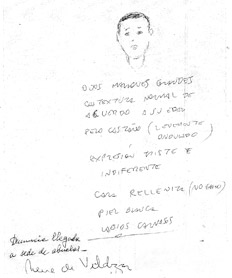 OJOS MARRONES GRANDES
CONTEXTURA NORMAL DE
ACUERDO A SU EDAD
PELO CASTAÑO (LEVEMENTE
ONDULADO)
EXPRESIÓN TRISTE E
INDIFERENTE
CARA RELLENITA (NO
PIEL BLANCA
LABIOS CARNOSOS
Denuncia llegada
a sede de abuelas -
de